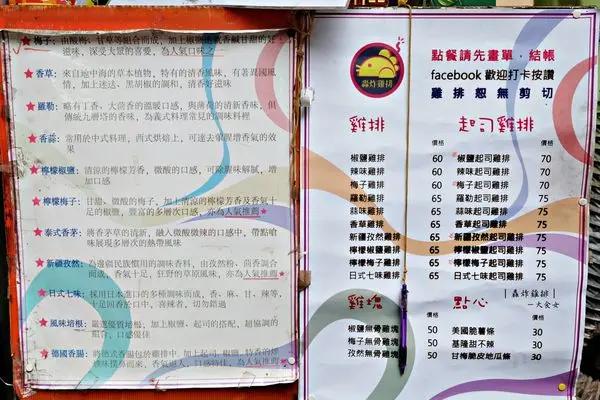 ★梅子：由酸梅、甘草等組合而成，加上椒鹽
滋味，深受大眾的喜愛，為人氣口味之
★香草：來自地中海的草本植物，特有的清香風味，有著異國風
情，加上迷迭、黑胡椒的調和，清香好滋味
★羅勒：略有丁香、大茴香的溫暖口感，與薄荷的清新香味，但
傳統九層塔的香味，為義式料理常見的調味料裡
★香蒜：常用於中式料理，西式烘焙上，可達去單腥增香氣的效
果
★檸檬椒鹽：清涼的檸檬芳香，微酸的口感，可除腥味解膩，增
加口感
★檸檬梅子：甘甜、微酸的梅子，加上清涼的檸檬芳香及香氣十
足的椒鹽，豐富的多層次口感，亦為人氣推薦★
★泰式香茅：將香茅草的清新，融入微酸微辣的口感中，帶點嗆
味展現多層次的熱帶風味
★新疆孜然：為邊疆民族慣用的調味香料，由孜然粉、茴香調合
而成，香氣十足，狂野的草原風味，亦為人氣推薦
★日式七味：採用日本進口的多種調味而成，香、麻、甘、辣等，
十足回香於口中，喜辣者，切勿錯過
★風味培根：嚴選優質培根，加上椒鹽、起司的搭配，超協調的
組合，口感優佳
★德國香腸：將德式香腸包於雞排中，加上起司、椒鹽，特香的炸
雞味撲鼻而來，香氣逼人，口感特佳，為人氣推薦
轟炸雞排
點餐請先畫單，結帳
facebook 歡迎打卡按讚
雞排恕無剪切
雞排 起司雞排
價格 價格
椒鹽雞排 60 椒鹽起司雞排 70
辣味雞排 60 辣味起司雞排 70
梅子雞排 60 梅子起司雞排 70
羅勒雞排 65 羅勒起司雞排 75
蒜味雞排 65 蒜味起司雞排 75
香草雞排 65 香草起司雞排 75
新疆孜然雞排 65 新疆孜然起司雞排 75
檸檬椒鹽雞排 65 檸檬椒鹽起司雞排 75
檸檬梅子雞排 65 檸檬梅子起司雞排 75
日式七味雞排 65 日式七味起司雞排 75
雞塊 點心 轟炸雞排
價格 價格
椒鹽無骨雞塊 50 美國脆薯條 30
梅子無骨雞塊 50 基隆甜不辣 30
孜然無骨雞塊 50 甘梅脆皮地瓜條 30